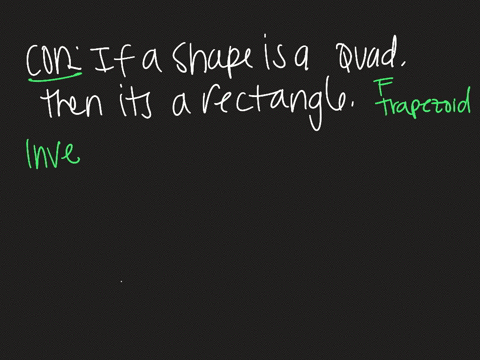 Con: If a shape is a Quad.
then its a rectangle. F
trapezoid
Inve